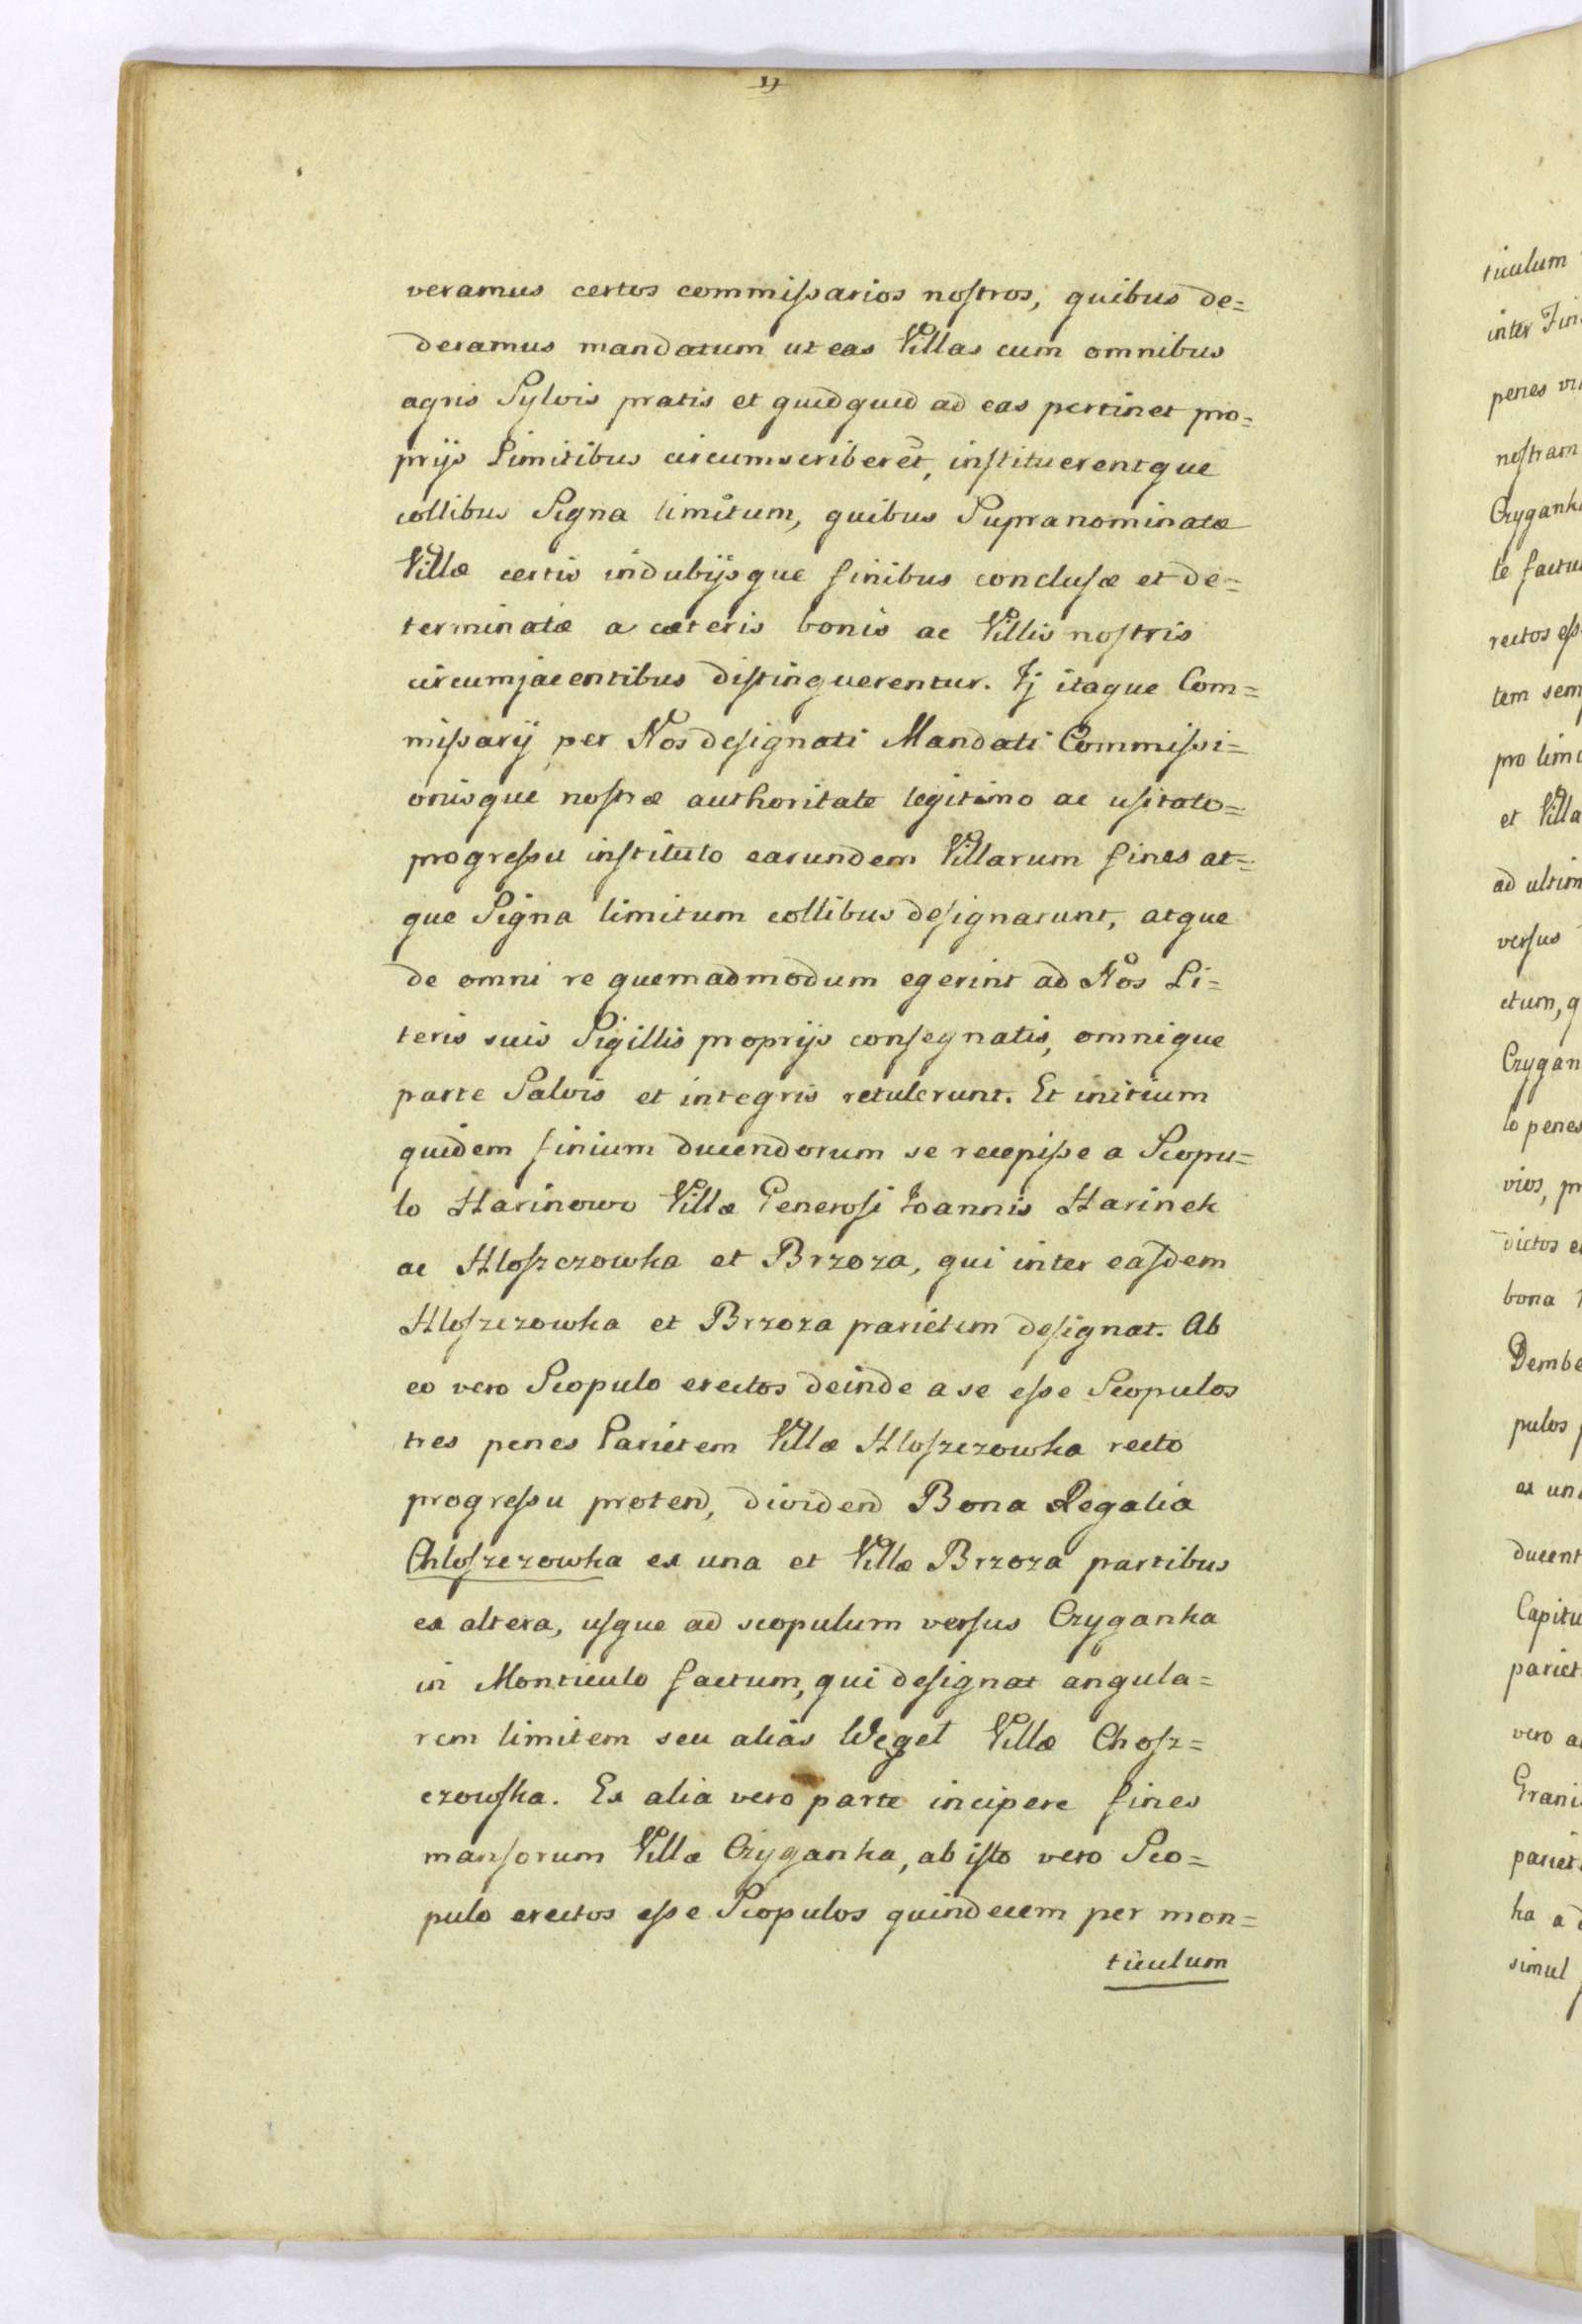 veramus certos commiſsarios noſtros, quibus de=
deramus mandatum ut eas Villas cum omnibus
agris Sylvis pratis et quidquid ad eas pertinet pro=
prijs Limitibus circumscriberet̄, inſtituerentque
collibus Signa limitum, quibus Supranominatæ
Villæ certis indubijsque finibus concluſæ et de=
terminatæ a cæteris bonis ac Villis noſtris
circumjacentibus diſtinguerentur. Ij itaque Com=
miſsarij per Nos deſignati Mandati Commiſsi=
onisque noſtræ authoritate legitimo ac uſitato=
progreſsu inſtituto earundem Villarum fines at=
que Signa limitum collibus deſignarunt, atque
de omni re quemadmodum egerint ad Nos Li=
teris suis Sigillis proprijs conſegnatis, omnique
parte Salvis et integris retulerunt. Et initium
quidem finium ducendorum se recepiſse a Scopu=
lo Harinowo Villæ Generoſi Joannis Harinek
ac Hloſzczowka et Brzoza, qui inter eaſdem
Hloſzczowka et Brzoza parietem deſignat. Ab
eo vero Scopulo erectos deinde a se eſse Scopulos
tres penes Parietem Villæ Hloſzczowka recto
progreſsu protend, dividend Bona Regalia
Chloſzczowka ex una et Villæ Brzoza partibus
ex altera, uſque ad scopulum verſus Czyganka
in Monticulo factum, qui deſignat angula=
rem limitem seu alias Węgeł Villæ Choſz=
czowſka. Ex alia vero parte incipere fines
manſorum Villæ Czyganka, ab iſto vero Sco=
pulo erectos eſse Scopulos quindecem per mon=
ticulum
ticulum
inter
penes
noſtram
le
rectos
tem
pro
et Villa
ad
verſus
ctum,
lo penes
vios,
dictos
bona
pulos
vero
ha
simul